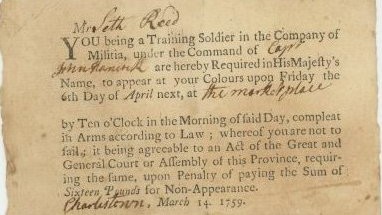 Mr Seth Reed
YOU being a Training Soldier in the Company of
Militia, under the Command of Capt
John Hancock are hereby Required in His Majesty's
Name, to appear at your Colours upon Friday the
6th Day of April next, at the market place
by Ten o'Clock in the Morning of said Day, compleat
in Arms according to Law; whereof you are not to
fail; it being agreeable to an Act of the Great and
General Court or Assembly of this Province, requir-
ing the same, upon Penalty of paying the Sum of
Sixteen Pounds for Non-Appearance.
Charlestown, March 14. 1759.